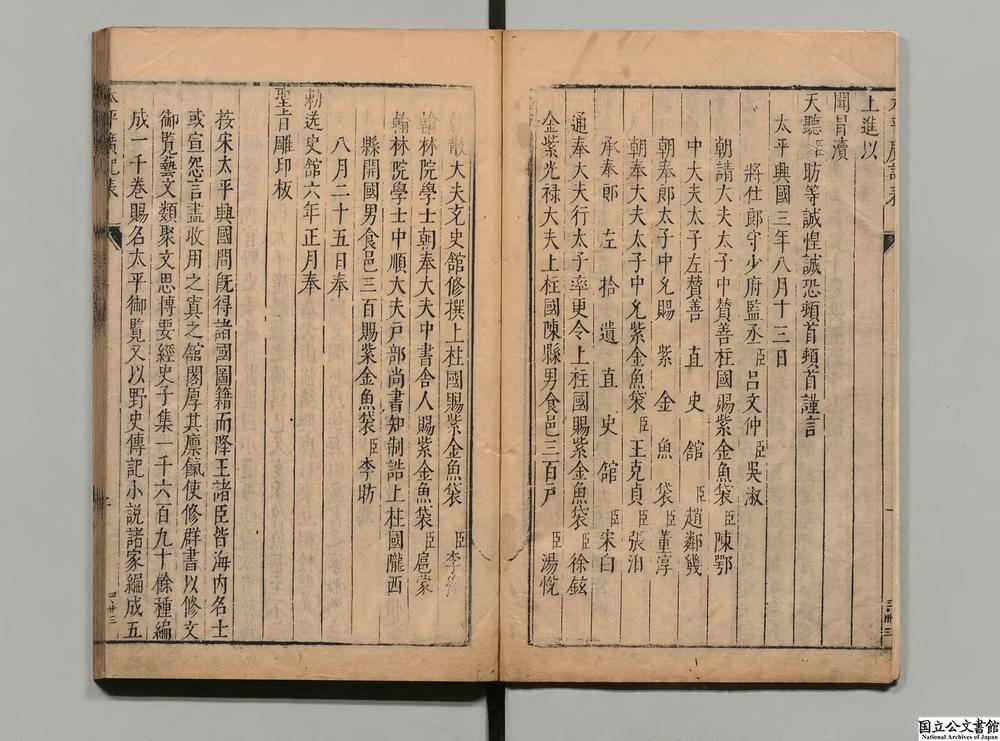 上進以
聞冒瀆
天聽臣昉等誠惶誠恐頓首頓首謹言
太平興國三年八月十三日
將仕郎守少府監丞臣呂文仲臣吳淑
朝請大夫太子中贊善柱國賜紫金魚袋臣陳鄂
中大夫太子左贊善直史館臣趙鄰幾
朝奉郎太子中允賜紫金魚袋臣董淳
朝奉大夫太子中允紫金魚袋臣王克貞臣張洎
承奉郎左拾遺直史館臣宋白
通奉大夫行太子率更令上柱國賜紫金魚袋臣徐鉉
金紫光祿大夫上柱國陳縣男食邑三百戶臣湯悅
散大夫史館修撰上柱國賜紫金魚袋臣李
翰林院學士朝奉大夫中書舍人賜紫金魚袋臣扈蒙
翰林院學士中順大夫戶部尚書知制誥上柱國隴西
縣開國男食邑三百賜紫金魚袋臣李昉
八月二十五日奉
勅送史館六年正月奉
聖旨雕印板
按宋太平興國間旣得諸國圖籍而降王諸臣皆海內名士
或宣怨言盡收用之寘之舘閣厚其廩餼使修群書以修文
御覽藝文類聚文思博要經史子集一千六百九十餘種編
成一千卷賜名太平御覽又以野史傳記小説諸家編成五
太平廣記表
国立公文書館
National Archives of Japan